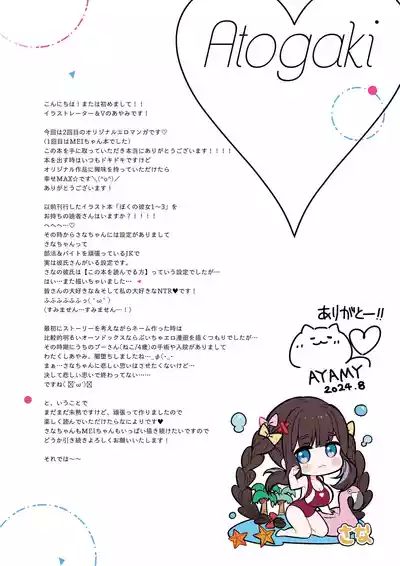 Atogaki
こんにちは！または初めまして！！
イラストレーター＆Vのあやみです！
今回は2回目のオリジナルエロマンガです♡
(1回目はMEIちゃん本でした)
この本を手に取っていただき本当にありがとうございます！！！！
本を出す時はいつもドキドキですけど
オリジナル作品に興味を持っていただけたら
幸せMAX☆です＼(^o^)／
ありがとうございます！
以前刊行したイラスト本「ぼくの彼女1～3」を
お持ちの読者さんはいますか？！！！！
へへへ…♡
その時からさなちゃんには設定がありまして
さなちゃんって
部活＆バイトを頑張っているJKで
実は彼氏さんがいる設定です。
さなの彼氏は【この本を読んでる方】っていう設定でしたが…
はい…また描いちゃいました…
皆さんの大好きな＆そして私の大好きなNTR♥です！
ふふふふふふっ( ˘ω˘ )
(すみません…すみません…！)
最初にストーリーを考えながらネーム作った時は
比較的明るいオーソドックスならぶいちゃエロ漫画を描くつもりでしたが…
その時期にうちのプーさん(ねこ/4歳)の手術や入院がありまして
わたくしあやみ、闇堕ちしましたね…_φ(･_･
まぁ…さなちゃんに悲しい思いはさせたくないけど…
決して悲しい思いで終わってない……
ですね( ˘ω˘ )
と、いうことで
まだまだ余熱ですけど、頑張って作りましたので
楽しんで読んでいただければなによりです♥
さなちゃんもMEIちゃんもいっぱい描き続けたいですので
どうか引き続きよろしくお願いいたします！
それでは～～
ありがとー!!
AYAMY
2024.8
さな